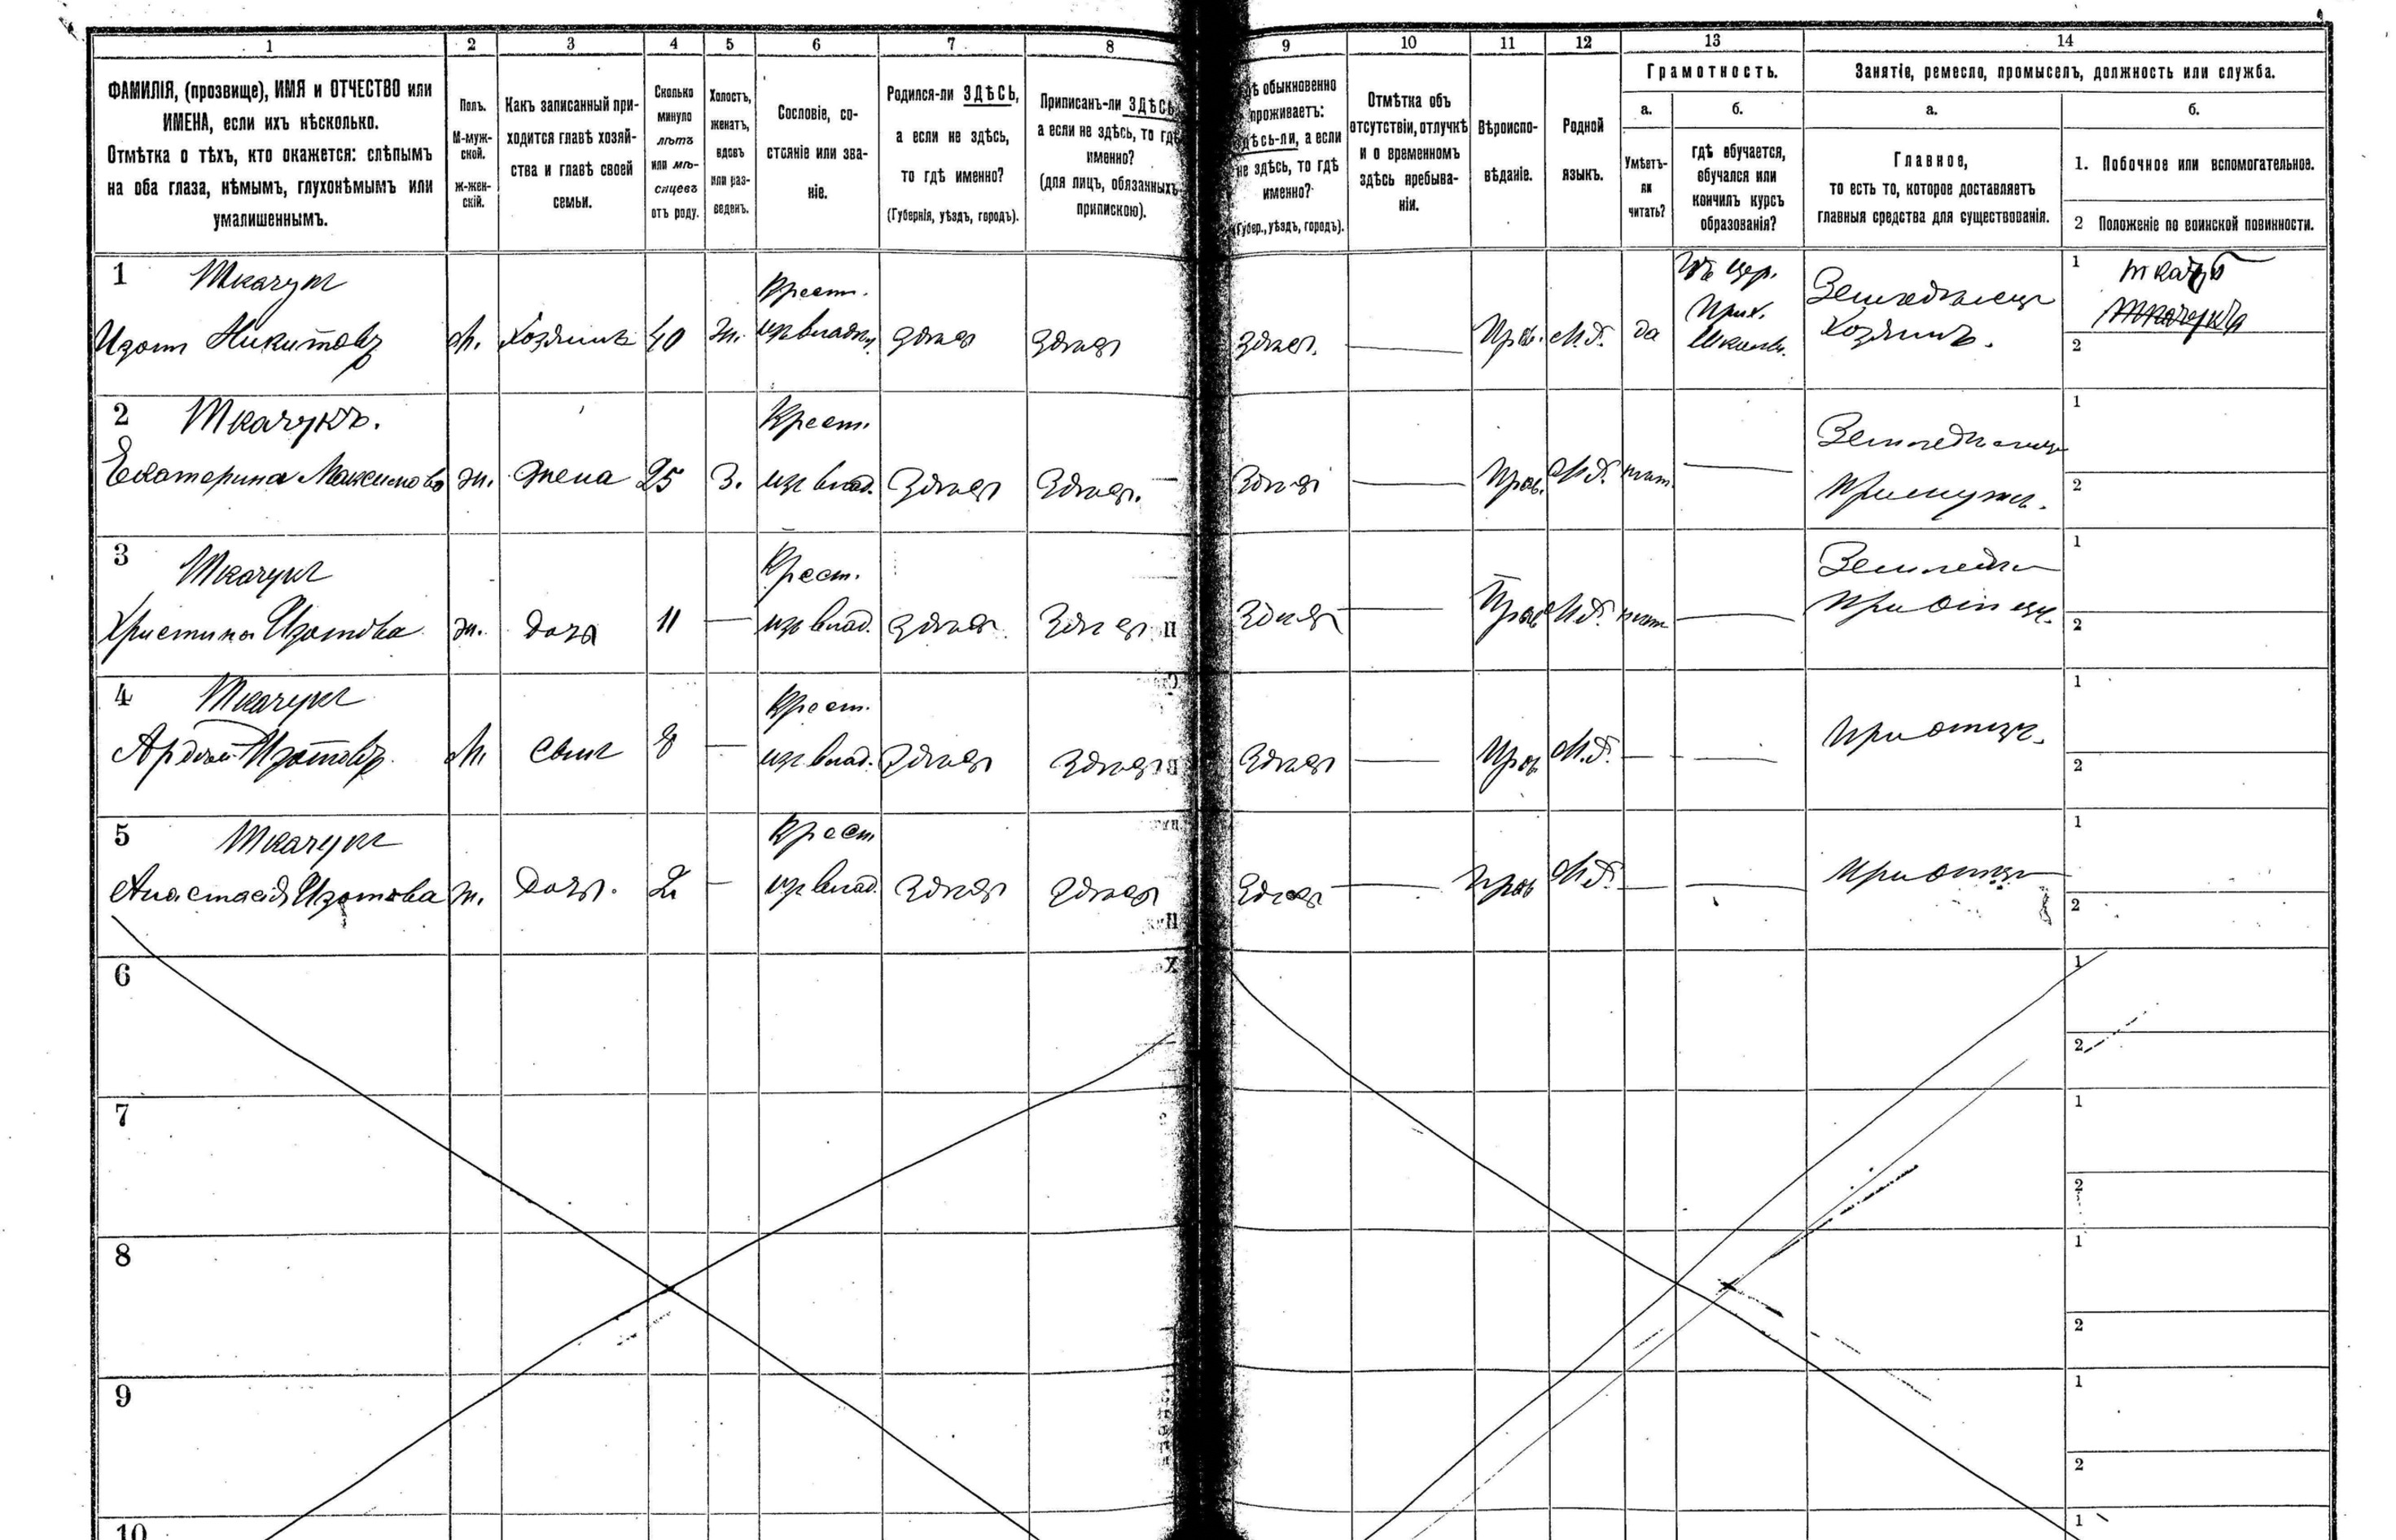 1 2 3 4 5 6 7 8 9 10 11 12 13 14
ФАМИЛІЯ, (прозвище), ИМЯ и ОТЧЕСТВО или
ИМЕНА, если ихъ нѣсколько.
Отмѣтка о тѣхъ, кто окажется: слѣпымъ
на оба глаза, нѣмымъ, глухонѣмымъ или
умалишеннымъ.
Полъ.
М-муж-
ской.
Ж-жен-
скій.
Какъ записанный при-
ходится главѣ хозяй-
ства и главѣ своей
семьи.
Сколько
минуло
лѣтъ
или мѣ-
сяцевъ
отъ роду.
Холостъ,
женатъ,
вдовъ
или раз-
веденъ.
Сословіе, со-
стояніе или зва-
ніе.
Родился-ли ЗДѢСЬ,
а если не здѣсь,
то гдѣ именно?
(Губернія, уѣздъ, городъ).
Приписанъ-ли ЗДѢСЬ
а если не здѣсь, то гдѣ
именно?
(для лицъ, обязанныхъ
припискою).
обыкновенно
проживаетъ:
а если
не здѣсь, то гдѣ
именно?
(Губер., уѣздъ, городъ).
Отмѣтка объ
отсутствіи, отлучкѣ
и о временномъ
здѣсь пребыва-
ніи.
Вѣроиспо-
вѣданіе.
Родной
языкъ.
Грамотность.
а.
Умѣетъ-
ли
читать?
б.
гдѣ обучается,
обучался или
кончилъ курсъ
образованія?
Занятіе, ремесло, промыселъ, должность или служба.
а.
Главное,
то есть то, которое доставляетъ
главныя средства для существованія.
б.
1. Побочное или вспомогательное.
2 Положеніе по воинской повинности.
1 Ткачукъ Крест. Въ цер. Земледѣлецъ 1 ткачъ
Изотъ Никитовъ М. Хозяинъ 40 Ж. изъ владѣ. здѣсь здѣсь здѣсь. Прав. М.Р. да Прих. Хозяинъ. 2
Школѣ.
2 Ткачукъ. Крест. Земледѣлецъ 1
Екатерина Максимова ж. Жена 25 З. изъ влад. Здѣсь Здѣсь. Здѣсь Прав. М.Р. нѣт. При мужѣ. 2
3 Ткачукъ Крест. Земледѣл 1
Христина Изотова ж. дочь 11 — изъ влад. Здѣсь Здѣсь Здѣсь Прав М.Р. нѣт При отцѣ. 2
4 Ткачукъ Крест. 1
Изотовъ М. Сынъ 8 — изъ влад. Здѣсь Здѣсь Здѣсь Прав М.Р. — При отцѣ. 2
5 Ткачукъ Крест 1
Анастасія Изотова ж. Дочь. 2 — изъ влад. Здѣсь Здѣсь Здѣсь Прав М.Р. — При отцѣ 2
6 1
2
7 1
2
8 1
2
9 1
2
10 1